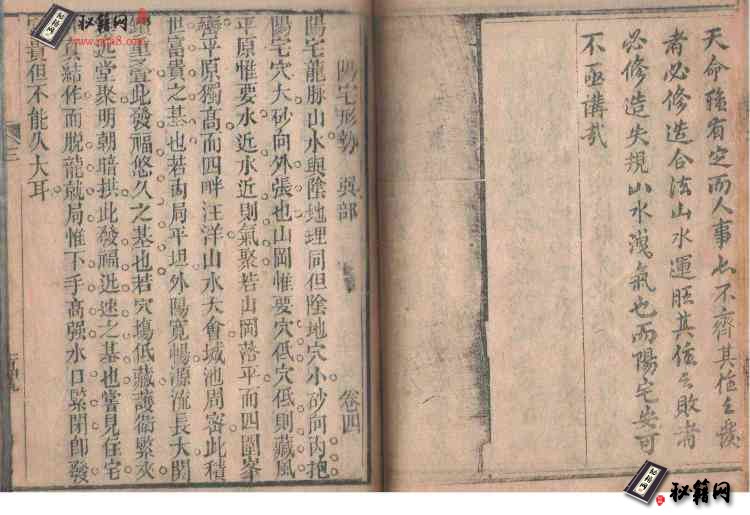 天命雖有定而人事亦不齊其住之發
者必修造合法山水運旺其住之敗者
必修造失規山水洩氣也而陽宅安可
不亟講哉
陽宅形勢 吳部 卷四
陽宅龍脉山水與陰地理同但陰地穴小砂向內抱
陽宅穴大砂向外張也山岡惟要穴低穴低則藏風
平原惟要水近水近則氣聚若山岡落平而四圍峯
齊平原獨高而四畔汪洋山水大會城池周密此積
世富貴之基也若兩局平坦外陽寛暢源流長大關
鎖重疊此發福悠久之基也若穴塲低藏護衛緊夾
近堂聚明朝暗拱此發福迅速之基也嘗見住宅
真結作而脫龍就局惟下手高强水口緊閉卽發
貴但不能久大耳
秘籍网
秘籍网